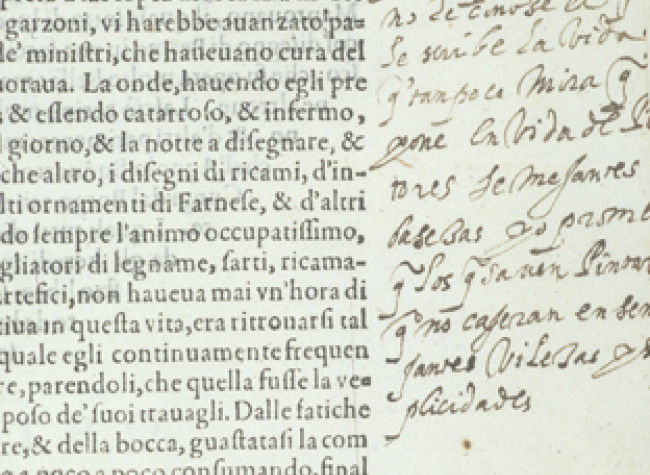 garzoni, vi harebbe auanzato'pa-
de' miniſtri, che haueuano cura del
noraua. La onde, hauendo egli pre
& eſſendo catarroſo, & infermo,
giorno, & la notte a diſegnare, &
che altro, i diſegni di ricami, d'in-
lti ornamenti di Farneſe, & d'altri
do ſempre l'animo occupatiſſimo,
gliatori di legname, ſarti, ricama-
rtefici, non haueua mai vn'hora di
tiua in queſta vita, era ritrouarſi tal
quale egli continuamente frequen
re, parendoli, che quella fuſſe la ve-
poſo de' ſuoi trauagli. Dalle fatiche
re, & della bocca, guaſtataſi la com
a poco a poco conſumando, final
no se
se scribe la Vida
q tanpoco mira q
pone en Vida de Pi
tores semejantes
basesas yo prome
q los q saven
q no caseran en sem
jantes Vilesas y
plicidades